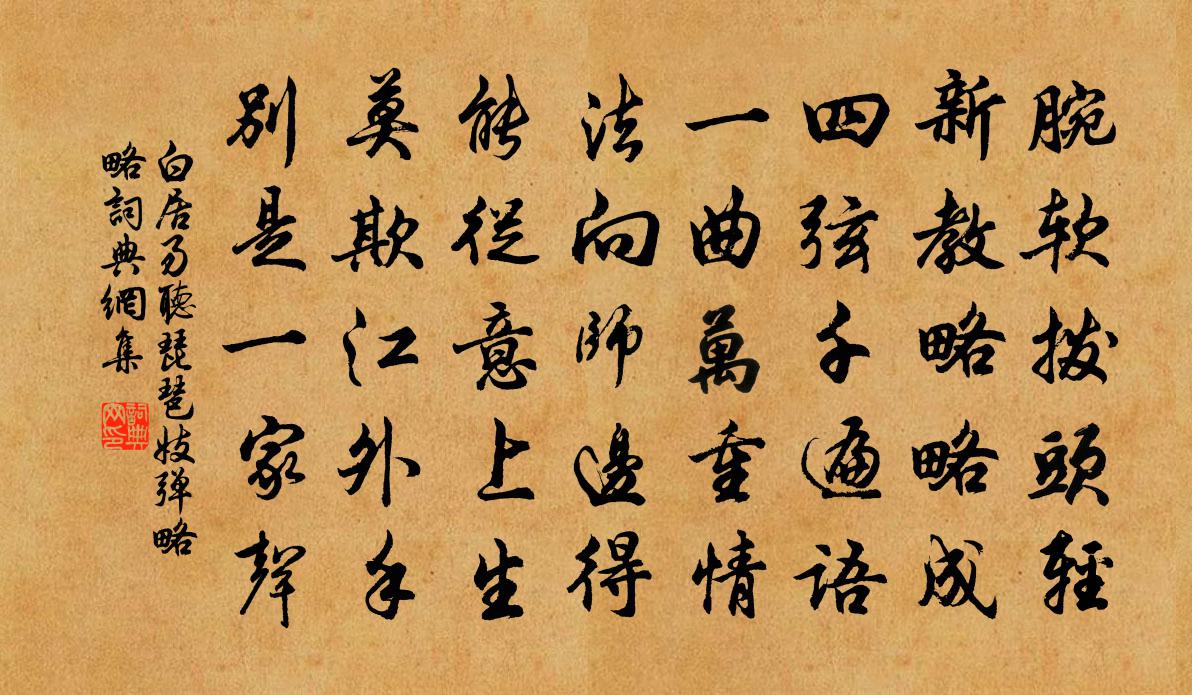 腕软拨頭輕
新教略略成
四弦千遍語
一曲萬重情
法向師邊得
能從意上生
莫欺江外手
別是一家聲
白居易聽琵琶妓弹略
略詞典網集
詞典
网印